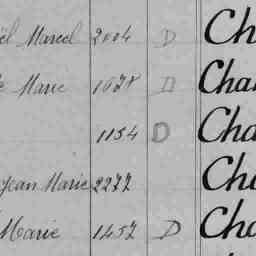 el Marcel 2004 D Ch
Marie 1678 D Cha
1154 D Cha
Jean Marie 2277 Cha
Marie 1457 D Cha